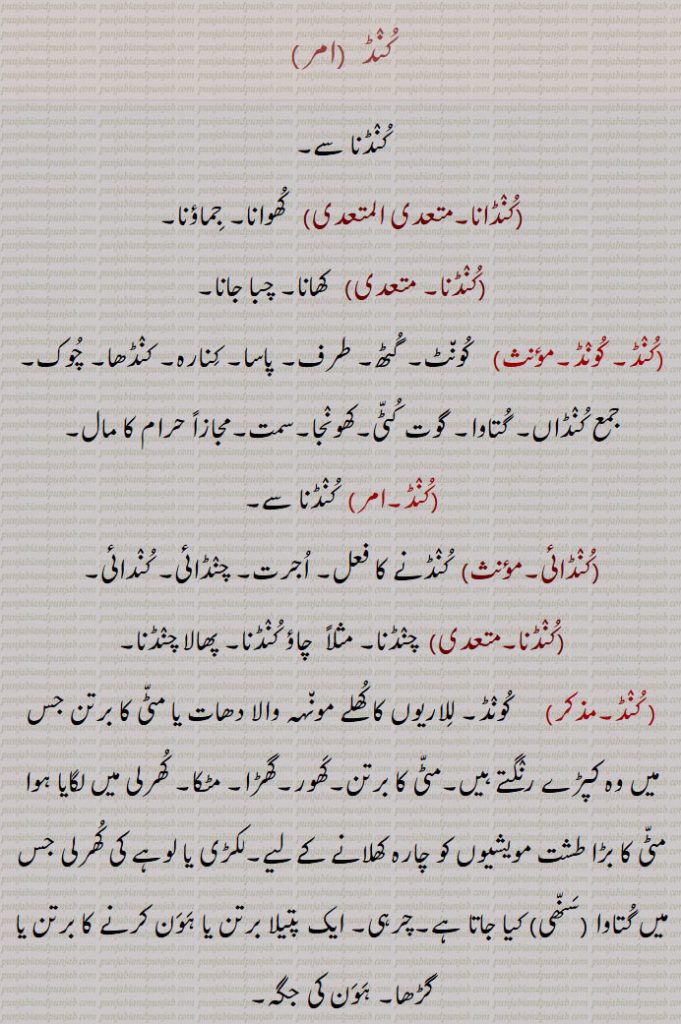 کُنْڈ (امر)
کُنْڈنا سے۔
(کُنْڈانا۔متعدی المتعدی) کُھوانا۔ جِماؤنا۔
(کُنْڈنا۔ متعدی) کھانا۔ چبا جانا۔
(کُنْڈ۔ کُونْڈ۔مؤنث) کُونّٹ۔ گُٹھ۔ طرف۔ پاسا۔ کِنارہ۔ کنْڈھا۔ چُوک۔
جمع کُنْڈاں۔ گُتاوا۔ گوت کُتّی۔کھونْجا۔سمت۔مجازاً حرام کا مال۔
(کُنْڈ۔امر) کُنْڈنا سے۔
(کُنْڈائی۔مؤنث) کُنْڈنے کا فعل۔ اُجرت۔ چنْڈائی۔ کُنْدائی۔
(کُنْڈنا۔متعدی) چنْڈنا۔ مثلاً چاؤ کُنْڈنا۔ پھالا چنْڈنا۔
(کُنْڈ۔مذکر) کُونْڈ۔ لِلاریوں کا کُھلے مونّہہ والا دھات یا مٹّی کا برتن جس
میں وہ کپڑے رنْگتے ہیں۔مٹّی کا برتن۔کَھور۔گَھڑا۔ مٹکا۔ کُھرلی میں لگایا ہوا
مٹّی کا بڑا طشت مویشیوں کو چارہ کھلانے کے لیے۔لکڑی یا لوہے کی کُھرلی جس
میں گُتاوا (سَنّھی) کیا جاتا ہے۔چرہی۔ ایک پتیلا برتن یا ہَوَن کرنے کا برتن یا
گڑھا۔ ہَوَن کی جگہ۔